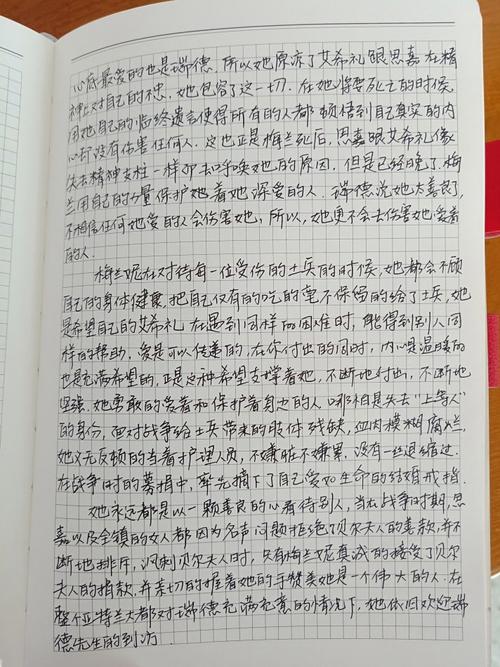 心底最爱的也是瑞德，所以她原谅了艾希礼跟思嘉在精
神上对自己的不忠，她包容了这一切。在她将要死亡的时候，
用她自己的临终遗言使得所有的人都顿悟到自己真实的内
心却没有伤害任何人。这也正是梅兰死后，思嘉跟艾希礼像
失去精神支柱一样哭去呼唤她的原因。但是已经晚了，梅
兰用自己的力量保护她着她深爱的人。瑞德说她太善良了，
不相信任何她爱的人会伤害她，所以，她更不会去伤害她爱着
的人。
梅兰妮在对待每一位受伤的士兵的时候，她都会不顾
自己的身体健康，把自己仅有的吃的毫不保留的给了士兵，她
是希望自己的艾希礼在遇到同样的困难时，能得到别人同
样的帮助，爱是可以传递的，在你付出的同时，内心是温暖的
也是充满希望的，正是这种希望支撑着她，不断地付出，不断地
坚强。她勇敢的爱着和保护着身边的人，哪怕是失去“上等人”
的身份，面对战争给士兵带来的肢体残缺，血肉模糊腐烂，
她义无反顾的当着护理人员，不嫌脏不嫌累，没有一丝退缩过。
在战争时的募捐中，率先摘下了自己爱如生命的结婚戒指。
她永远都是以一颗善良的心看待别人，当在战争时期，思
嘉以及全镇的女人都因为名声问题拒绝了贝尔夫人的善款，并不
断地排斥，讽刺贝尔夫人时，只有梅兰妮真诚的接受了贝尔
夫人的捐款，并亲切的握着她的手赞美她是一个伟大的人。在
整个亚特兰大都对瑞德充满恶意的情况下，她依旧欢迎瑞
德先生的到访。